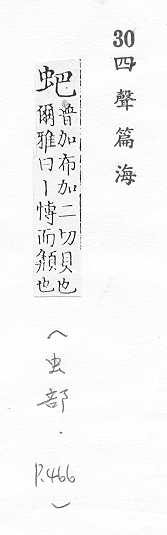 30四聲篇海
蚆普加布加二切貝也
爾雅曰丨博而頯也
（虫部．
P.466）